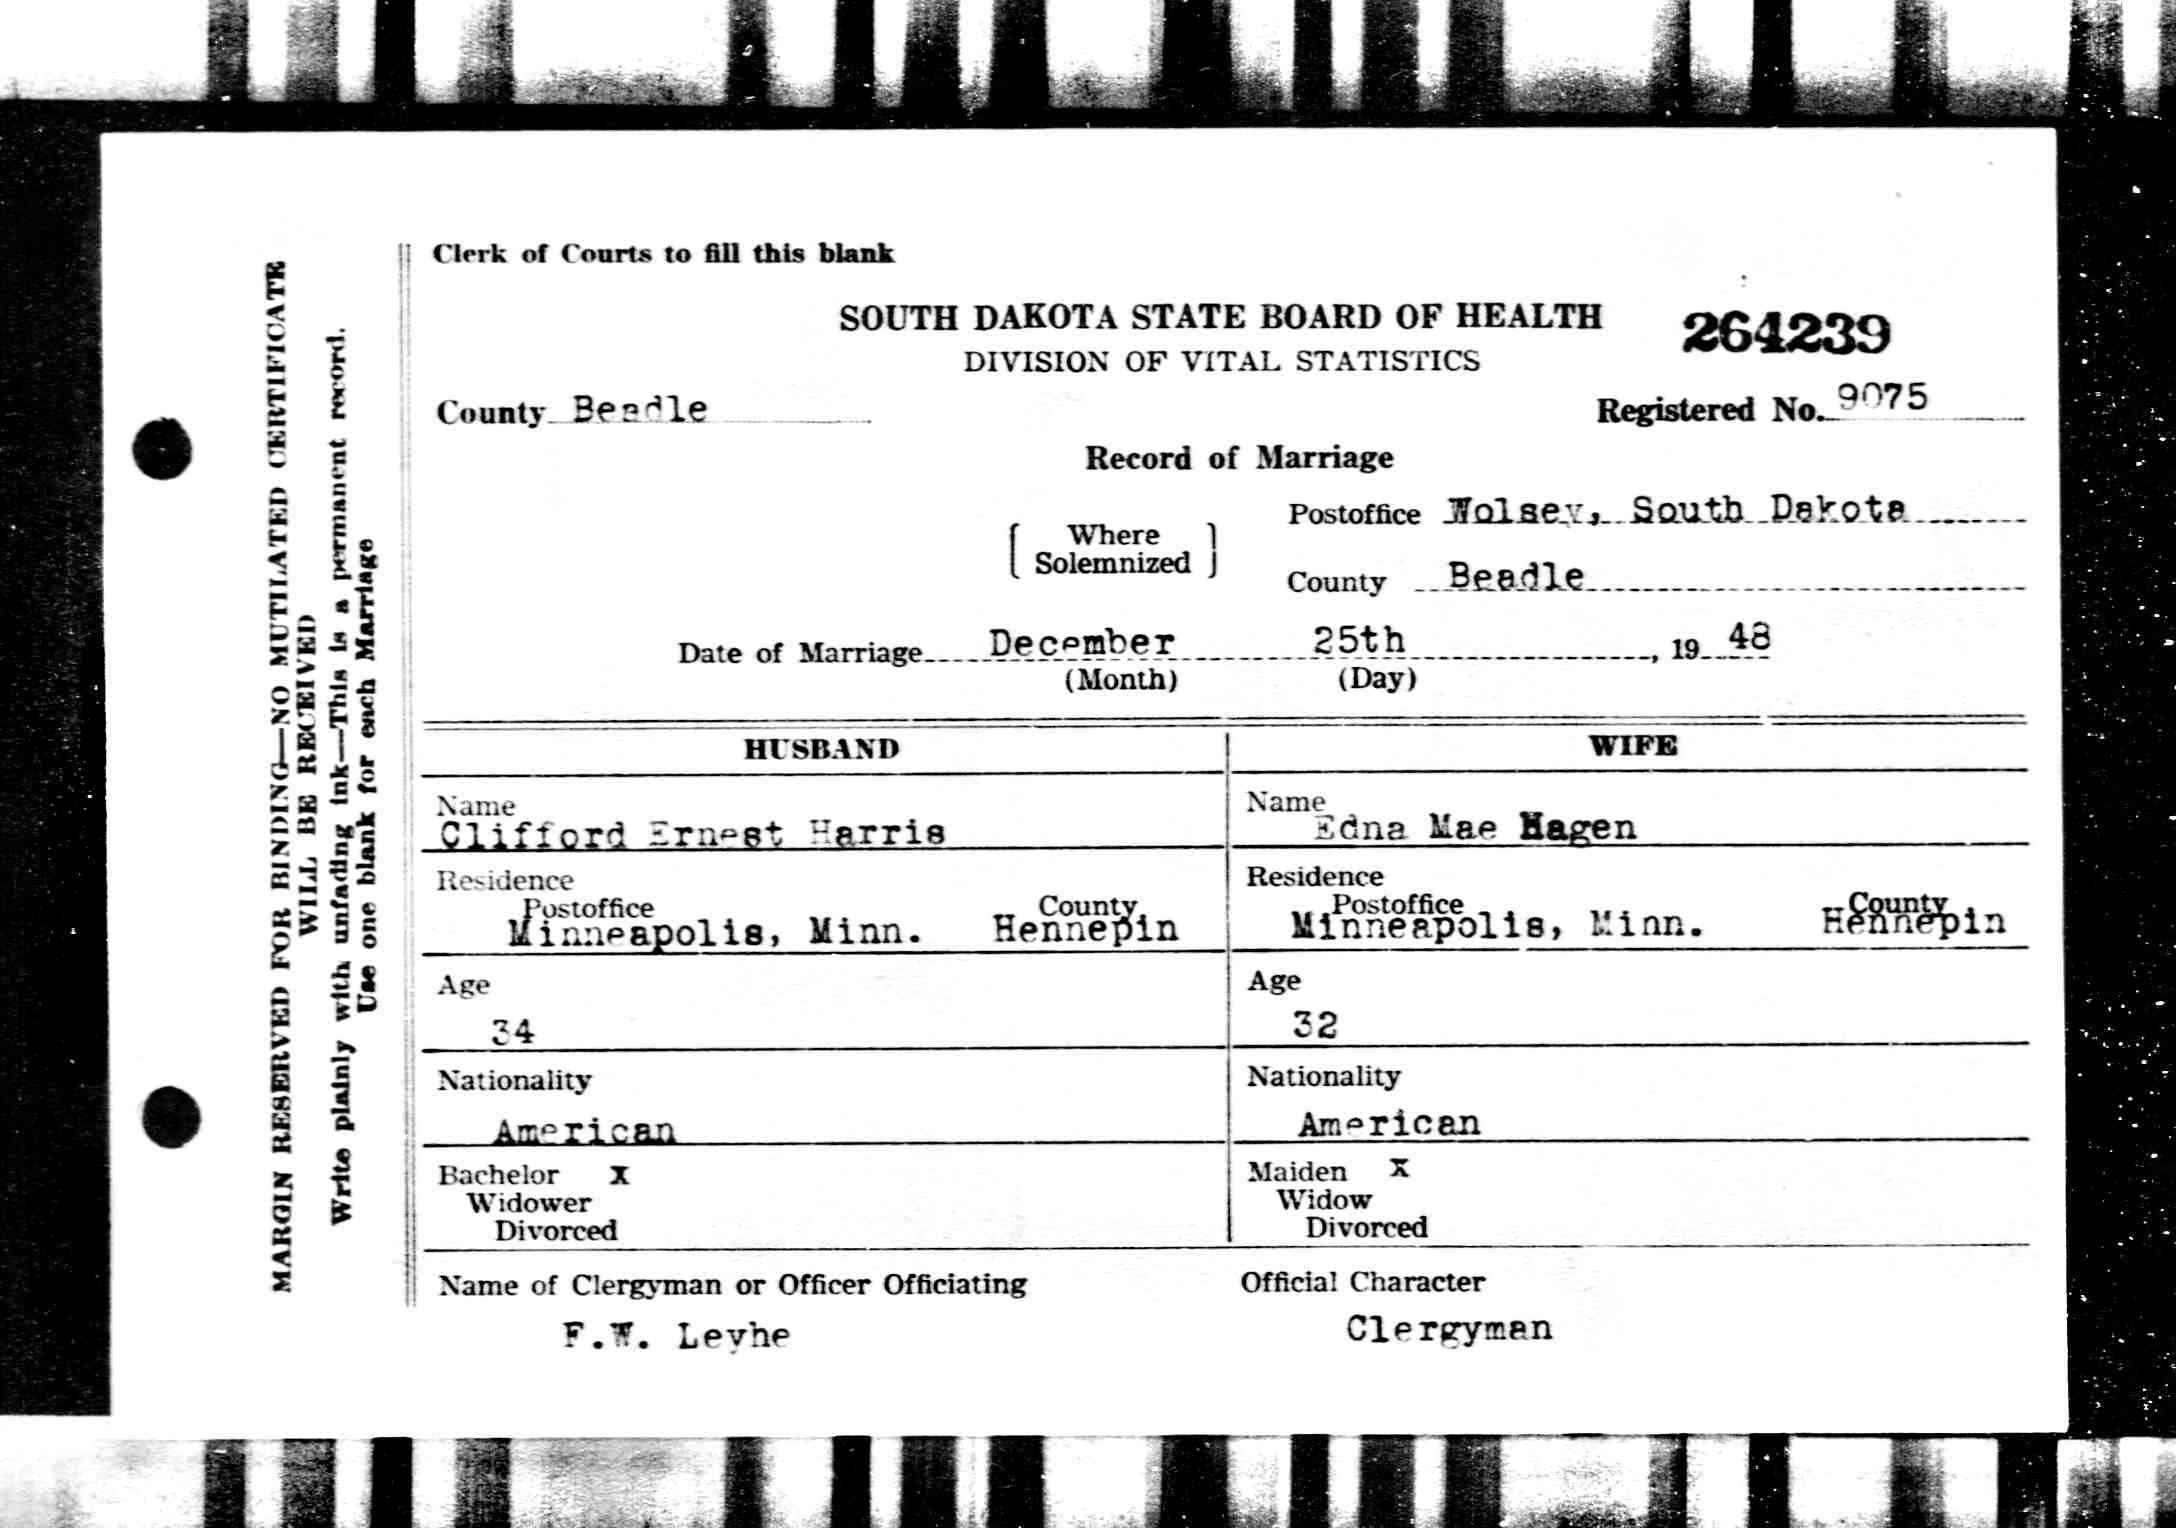 Clerk of Courts to fill this blank
SOUTH DAKOTA STATE BOARD OF HEALTH
264239
DIVISION OF VITAL STATISTICS
County Beadle
Registered No. 9075
Record of Marriage
Where Solemnized
Postoffice Wolsey, South Dakota
County Beadle
Date of Marriage December 25th, 19 48
(Month) (Day)
HUSBAND
WIFE
Name
Clifford Ernest Harris
Name
Edna Mae Hagen
Residence
Postoffice County
Minneapolis, Minn. Hennepin
Residence
Postoffice County
Minneapolis, Minn. Hennepin
Age
34
Age
32
Nationality
American
Nationality
American
Bachelor X
Widower
Divorced
Maiden X
Widow
Divorced
Name of Clergyman or Officer Officiating
F.W. Leyhe
Official Character
Clergyman
MARGIN RESERVED FOR BINDING—NO MUTILATED CERTIFICATE
WILL BE RECEIVED
Write plainly with unfading ink—This is a permanent record.
Use one blank for each Marriage